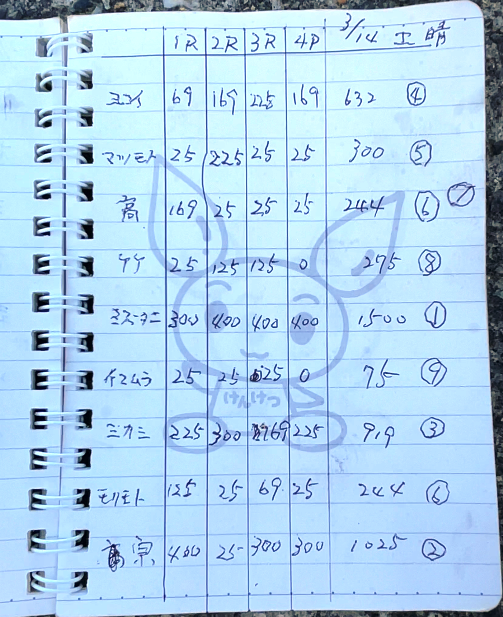 1R 2R 3R 4R 3/14 工 晴
ヨコイ 69 169 225 169 632 ④
マツモト 25 225 25 25 300 ⑤
高 169 25 25 25 244 ⑥ ⑦
ケケ 25 125 125 0 275 ⑧
ミズタニ 300 400 400 400 1500 ①
イマムラ 25 25 25 0 75 ⑨
けんけつ
ミカミ 225 300 169 225 919 ③
モリモト 125 25 69 25 244 ⑥
原 400 25 300 300 1025 ②